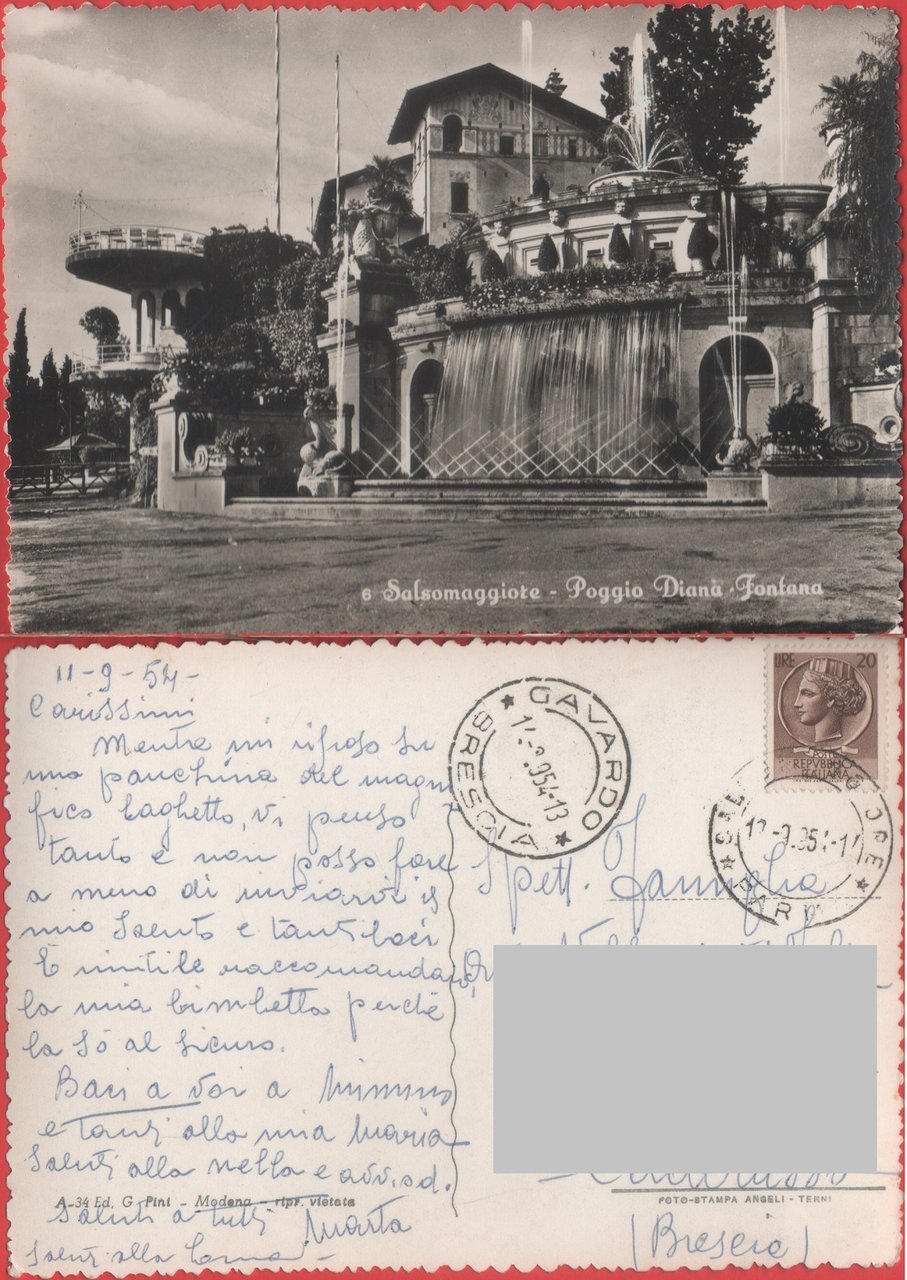 6 Salsomaggiore - Poggio Diana - Fontana
11-9-54-
Carissimi
Mentre mi riposo su
una panchina del magni
fico laghetto, vi penso
tanto e non posso fare
a meno di inviarvi il
mio saluto e tanti baci
È inutile raccomandarvi
la mia bimbetta perchè
la so al sicuro.
Baci a voi a Mimmo
e tanti alla mia Maria
Saluti alla Nella e
Saluti a tutti Marta
Saluti alla
A-34 Ed. G. Pini - Modena - ripr. vietata
GAVARDO
BRESCIA
9.954-13
LIRE 20
POSTE
REPVBBLICA
ITALIANA
Spett. Famiglia
FOTO-STAMPA ANGELI - TERNI
(Brescia)